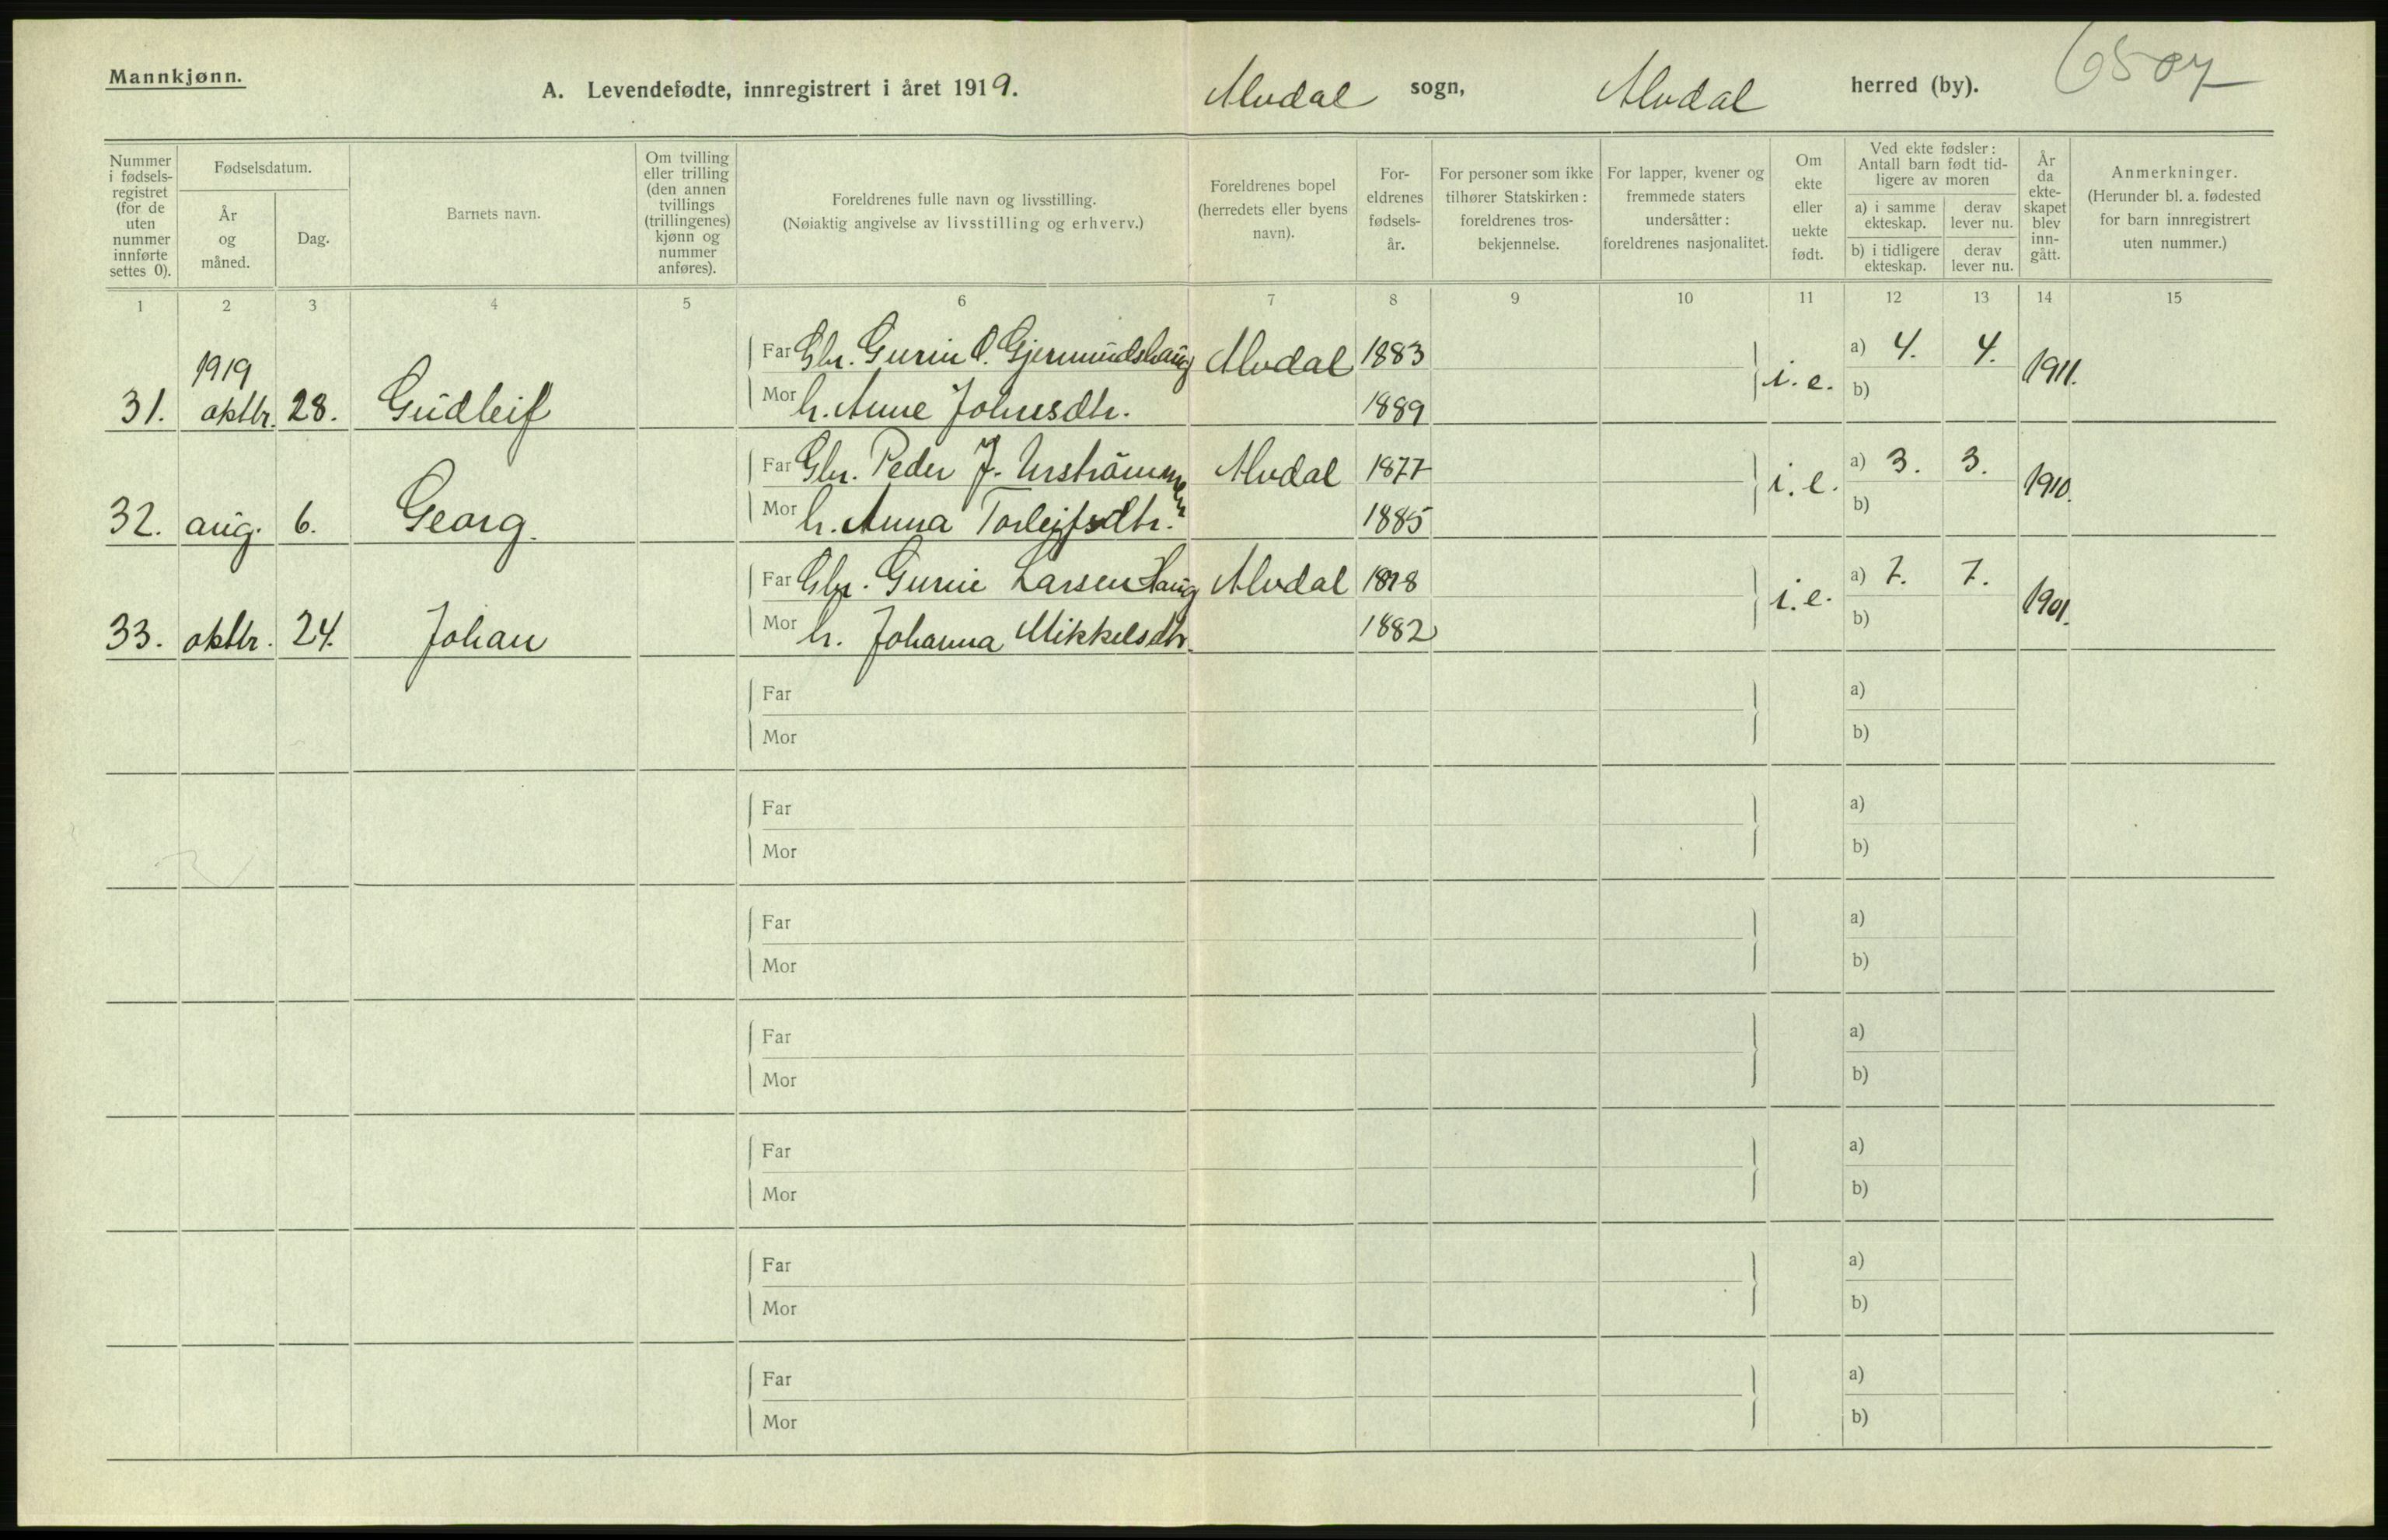 Mannkjønn.
A. Levendefødte, innregistrert i året 1919.
Alvdal sogn, Alvdal herred (by).
6507
Nummer i fødsels-registret (for de uten nummer innførte settes 0).
Fødselsdatum.
År og måned.
Dag.
Barnets navn.
Om tvilling eller trilling (den annen tvillings (trillingenes) kjønn og nummer anføres).
Foreldrenes fulle navn og livsstilling.
(Nøiaktig angivelse av livsstilling og erhverv.)
Foreldrenes bopel (herredets eller byens navn).
For-eldrenes fødsels-år.
For personer som ikke tilhører Statskirken: foreldrenes tros-bekjennelse.
For lapper, kvener og fremmede staters undersåtter: foreldrenes nasjonalitet.
Om ekte eller uekte født.
Ved ekte fødsler: Antall barn født tid-ligere av moren
a) i samme ekteskap.
derav lever nu.
b) i tidligere ekteskap.
derav lever nu.
År da ekte-skapet blev inn-gått.
Anmerkninger.
(Herunder bl. a. fødested for barn innregistrert uten nummer.)
1 2 3 4 5 6 7 8 9 10 11 12 13 14 15
Far Gbr. Gunn O. Gjermundshaug Alvdal 1883 a) 4. 4.
1919
31. oktbr. 28. Gudleif Mor h. Anne Johnsdtr. 1889 i. e. b) 1911.
Far Gbr. Peder J. Urstrømmen Alvdal 1877 a) 3. 3.
32. aug. 6. Georg. Mor h. Anna Torleifsdtr. 1885 i. e. b) 1910.
Far Gbr. Gunn Larsen Haug Alvdal 1878 a) 7. 7.
33. oktbr. 24. Johan Mor h. Johanna Mikkelsdtr. 1882 i. e. b) 1901.
Far a)
Mor b)
Far a)
Mor b)
Far a)
Mor b)
Far a)
Mor b)
Far a)
Mor b)
Far a)
Mor b)
Far a)
Mor b)